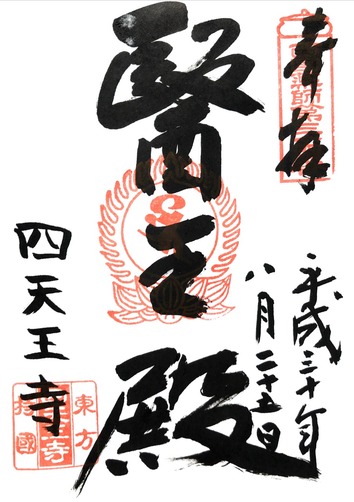 奉拝
平成三十年
八月二十五日
醫王殿
四天王寺
東方